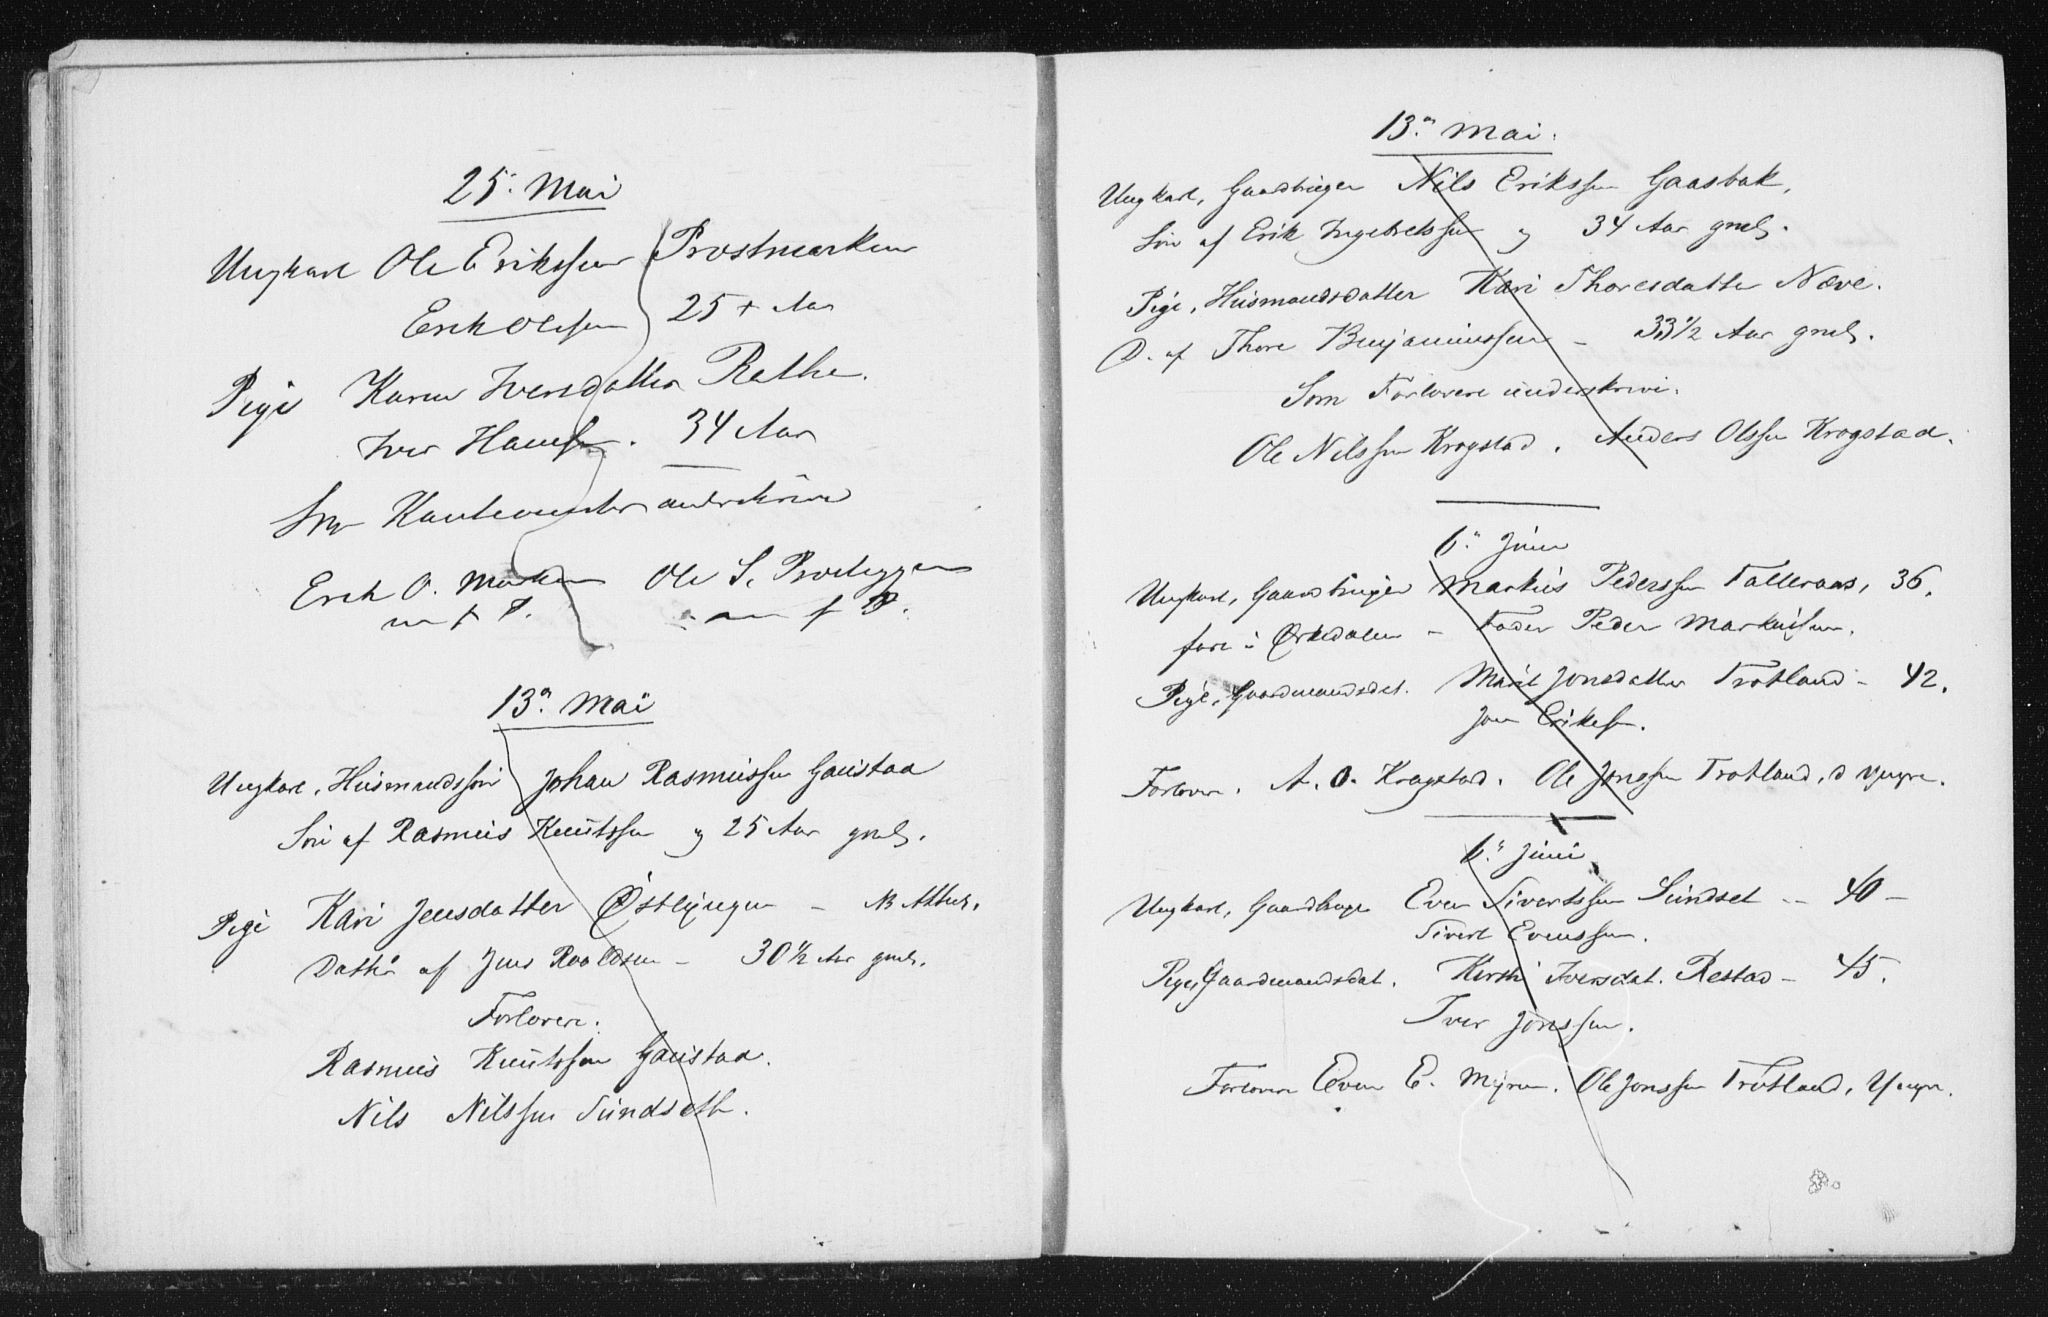 25. Mai
Ungkarl Ole Erikssen Prostmarken
Erik Olessen 25 + Aar
Pige Karen Iversdatter Rethe.
Iver Hanssen. 34 Aar
Som underskrive
Erik O. Marken Ole S.
m f P. m f P.
13de Mai
Ungkarl, Husmandssøn Johan Rasmussen Gaustaa
Søn af Rasmus Knutssen og 25 Aar gml.
Pige Kari Jensdatter Østlyngen –
Datter af Jens Roaldsen – 30 1/2 Aar gml.
Forlovere.
Rasmus Knutssen Gaustaa.
Nils Nilssen Sundseth.
13de Mai.
Ungkarl, Gaardbruger Nils Erikssen Gaasbak,
Søn af Erik Ingebretssen og 34 Aar gml.
Pige, Husmandsdatter Kari Thoresdatter Næve.
D. af Thore Benjaminssen – 33 1/2 Aar gml.
Som Forlovere underskrive.
Ole Nilssen Krogstad. Anders Olssen Krogstad.
6te Juni
Ungkarl, Gaardbruger Markus Pederssen Talleraas, 36.
født i Ørkedalen – Fader Peder Markussen.
Pige, Gaardmandsdat. Marit Jonsdatter Trotland – 42.
Jon Erikssen.
Forlovere. A. O. Krogstad. Ole Jonssen Trotland, d yngre.
6te Juni
Ungkarl, Gaardbruger Even Sivertssen Sundset – 40 –
Sivert Evenssen.
Pige, Gaardmandsdat. Kirsti Iversdat. Restad – 45.
Iver Jonssen.
Forlovere Even E. Myren. Ole Jonssen Trotland, Yngre.